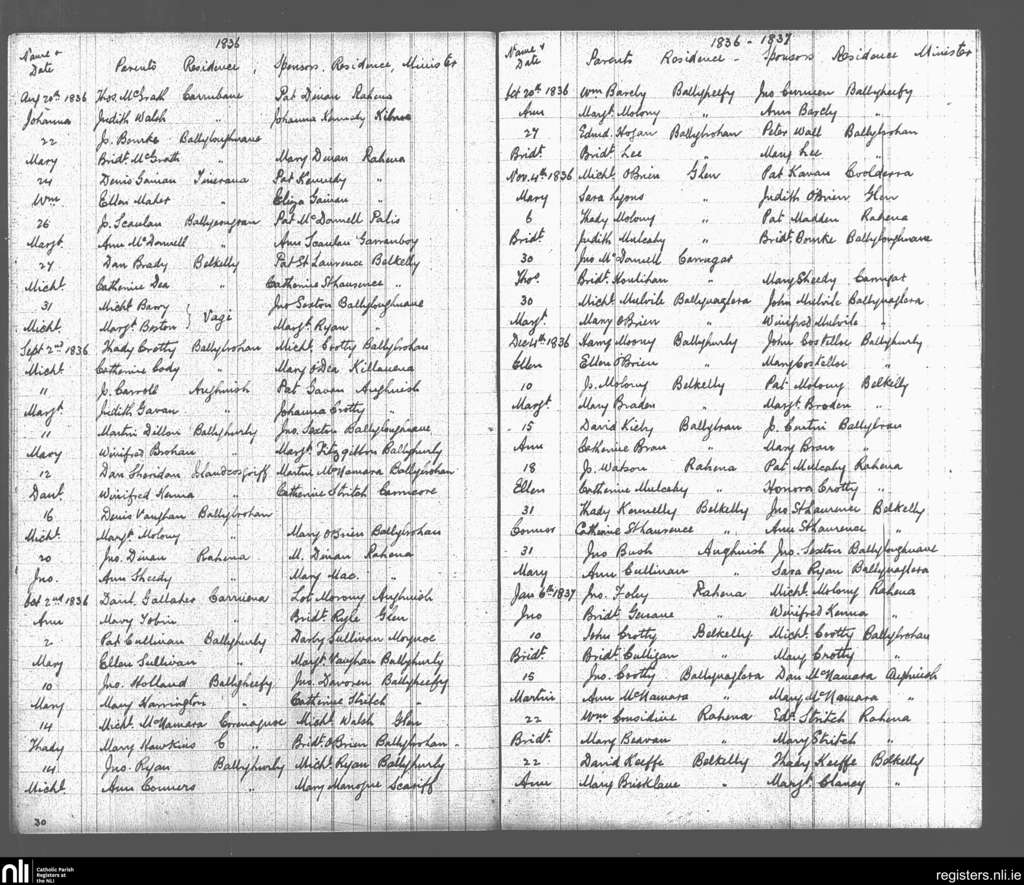 1836
Name + Date Parents Residence, Sponsors, Residence, Minister
Aug 20th 1836 Thos McGrath Carrubane Pat Dinan Rahena
Johanna Judith Walsh " Johanna Kennedy
22 Jo. Bourke Ballyloughnane
Mary Bridt. McGrath " Mary Dinan Rahena
24 Denis Gainan Pat Kennedy "
Wm Ellen Maher " Eliza Gainan "
26 J. Scanlan Pat McDonnell
Margt. Ann McDonnell " Ann Scanlan Garranboy
27 Dan Brady Belkelly Pat St Laurence Belkelly
Michl. Catherine Dea " Catherine St Laurence "
31 Michl Barry Jno Sexton Ballyloughnane
Michl. Margt. Boston } Vagi Margt. Ryan "
Sept 2nd 1836 Thady Crotty Ballybrohan Michl. Crotty Ballybrohan
Michl Catherine Cody " Mary O'Dea Killanena
11 J. Carroll Aughinish Pat Gavan Aughinish
Margt. Judith Gavan " Johanna Crotty "
11 Martin Dillon Ballyhurly Jno. Sexton Ballyloughnane
Mary Winifred Brohan " Margt. Fitzgibbon Ballyhurly
12 Dan Sheridan Islandcosgriff Martin McNamara Ballybrohan
Danl. Winifred Kenna " Catherine Stritch
16 Denis Vaughan Ballybrohan
Michl. Margt. Molony " Mary O'Brien Ballybrohan
20 Jno. Dinan Rahena M. Dinan Rahena
Jno. Ann Sheedy " Mary Mac. "
Oct 2nd 1836 Danl. Gallaher Lot Morony Aughinish
Ann Mary Tobin " Bridt. Ryle Glen
2 Pat Cullinan Ballyhurly Darby Sullivan Moynoe
Mary Ellen Sullivan " Margt. Vaughan Ballyhurly
10 Jno. Holland Ballyheefy Jno. Davoren Ballyheefy
Mary Mary Harrington " Catherine Stritch "
14 Michl. McNamara Michl. Walsh Glen
Thady Mary Hawkins C " Bridt. O'Brien Ballybrohan "
14 Jno. Ryan Ballyhurly Michl. Ryan Ballyhurly
Michl Ann Conners " Mary Menogue Scariff
30
1836 - 1837
Name + Date Parents Residence - Sponsors Residence Minister
Oct 20th 1836 Wm Barcly Ballyheefy Jno. Ballyheefy
Ann Margt. Molony " Ann Barcly "
27 Edmd. Hogan Ballybrohan Peter Wall Ballybrohan
Bridt. Bridt. Lee " Mary Lee "
Nov. 4th 1836 Michl. O'Brien Glen Pat Kavan Coolderra
Mary Sara Lyons " Judith O'Brien Glen
6 Thady Molony " Pat Madden Rahena
Bridt. Judith Mulcahy " Bridt. Bourke Ballyloughnane
30 Jno McDonnell Carrugar
Thos. Bridt. Houlihan " Mary Sheedy Carrugar
30 Michl. Mulvile Ballynaglera John Mulvile Ballynaglera
Margt. Mary O'Brien " Winifred Mulvile "
Dec 4th 1836 Harry Morny Ballyhurly John Costelloe Ballyhurly
Ellen Ellen O'Brien " Mary Costelloe "
10 Jo. Molony Belkelly Pat Molony Belkelly
Margt. Mary Braden " Margt. Broden "
15 David Kirby Ballybran J. Curtin Ballybran
Ann Catherine Bran " Mary Bran "
18 Jo. Watson Rahena Pat Mulcahy Rahena
Ellen Catherine Mulcahy " Honora Crotty "
31 Thady Kennelly Belkelly Jno St Laurence Belkelly
Connor Catherine St Laurence " Ann St Laurence "
31 Jno Bush Aughinish Jno. Sexton Ballyloughnane
Mary Ann Cullinan " Sara Ryan Ballynaglera
Jan 6th 1837 Jno. Foley Rahena Michl. Molony Rahena
Jno Bridt. " Winifred Kenna "
10 John Crotty Belkelly Michl. Crotty Ballybrohan
Bridt. Bridt. Culligan " Mary Crotty "
15 Jno. Crotty Ballynaglera Dan McNamara Aughinish
Martin Ann McNamara " Mary McNamara "
22 Wm Considine Rahena Edd. Stritch Rahena
Bridt. Mary Beavan " Mary Stritch "
22 David Keeffe Belkelly Thady Keeffe Belkelly
Ann Mary Bricklane " Margt. Clancy "
nli Catholic Parish Registers at the NLI
registers.nli.ie